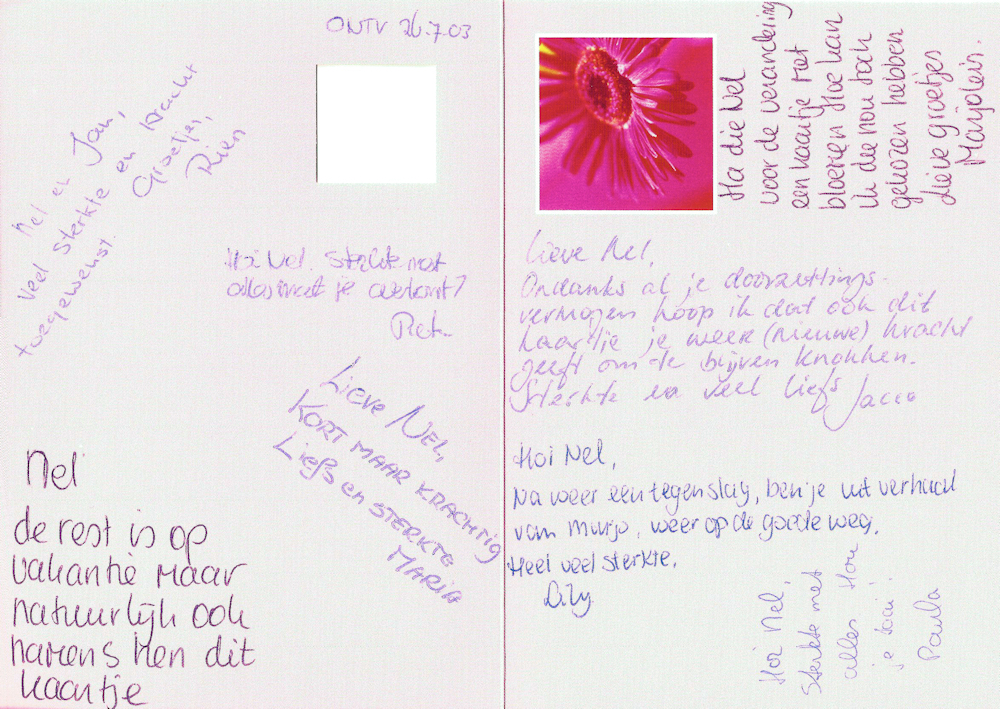 ONTV 26.7.03
Nel en Jan,
veel sterkte en kracht
toegewenst.
Groetjes,
Rien
Hoi Nel, sterkte met
alles wat je
Piet.
Lieve Nel,
KORT MAAR KRACHTIG
Liefs en STERKTE
MARIA
Nel
de rest is op
vakantie maar
natuurlijk ook
namens hen dit
kaartje
Ha die Nel
voor de verandering
een kaartje met
bloemen Hoe kan
ik die nou toch
gekozen hebben
Lieve groetjes
Marjolein.
Lieve Nel,
Ondanks al je doorzettings-
vermogen hoop ik dat ook dit
kaartje je weer (nieuwe) kracht
geeft om te blijven knokken.
Sterkte en veel liefs Jacco
Hoi Nel,
Na weer een tegenslag, ben je uit verhaal
van , weer op de goede weg.
Heel veel sterkte.
Lily
Hoi Nel,
Sterkte met
alles Hou
je taai!
Paula